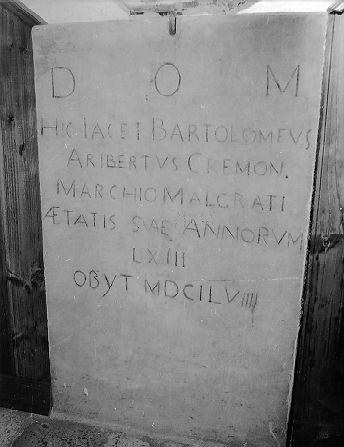 D O M
HIC IACET BARTOLOMEVS
ARIBERTVS CREMON.
MARCHIO MALGRATI
ÆTATIS SVÆ ANNORVM
LXIII
OBYT MDCILVIIII